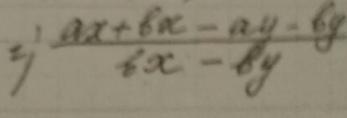 г) ax + bx - ay - by
bx - by